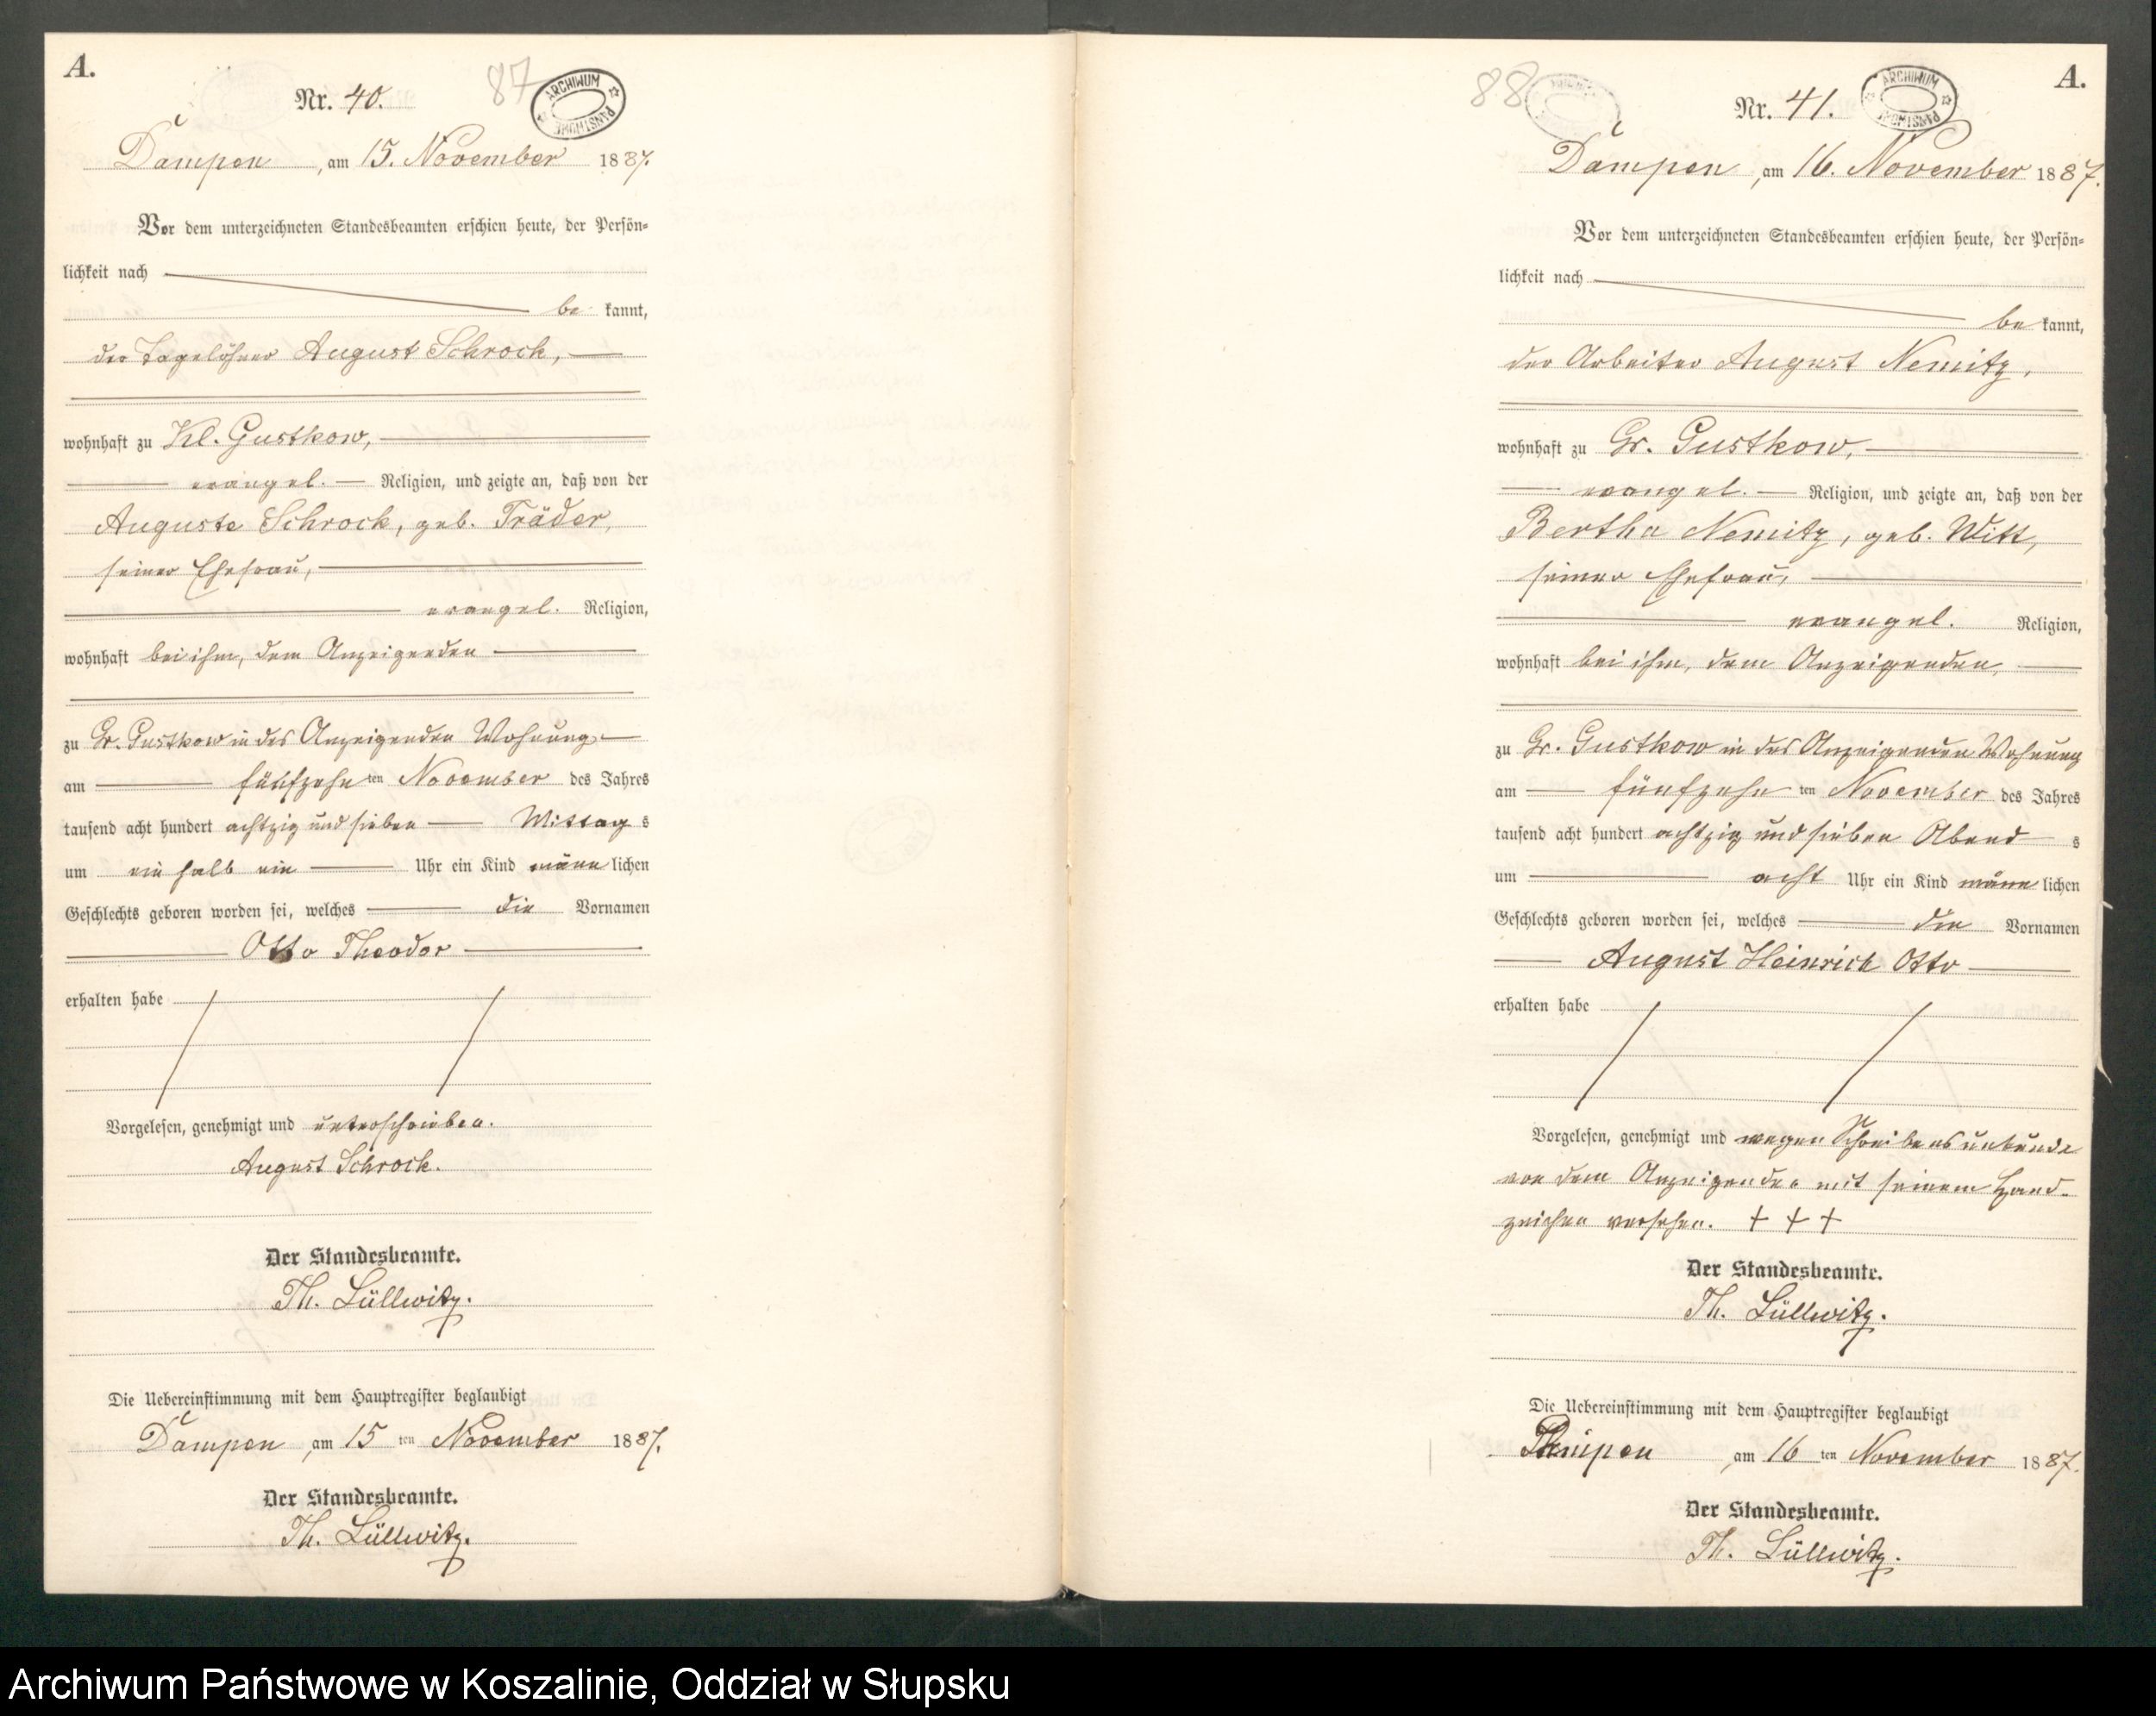 A.
Nr. 40.
87
ARCHIWUM PAŃSTWOWE
Dampen, am 15. November 1887.
Vor dem unterzeichneten Standesbeamten erschien heute, der Persön-
lichkeit nach
be kannt,
der Tagelöhner August Schrock,
wohnhaft zu Kl. Gustkow,
evangel. Religion, und zeigte an, daß von der
Auguste Schrock, geb. Träder,
seiner Ehefrau,
evangel. Religion,
wohnhaft bei ihm, dem Anzeigenden
zu Gr. Gustkow in des Anzeigenden Wohnung
am fünfzehn ten November des Jahres
tausend acht hundert achtzig und sieben Mittag s
um ein halb ein Uhr ein Kind männ lichen
Geschlechts geboren worden sei, welches die Vornamen
Otto Theodor
erhalten habe
Vorgelesen, genehmigt und unterschrieben.
August Schrock.
Der Standesbeamte.
Th. Lüllwitz.
Die Uebereinstimmung mit dem Hauptregister beglaubigt
Dampen, am 15 ten November 1887.
Der Standesbeamte.
Th. Lüllwitz.
88
A.
Nr. 41.
ARCHIWUM PAŃSTWOWE
Dampen, am 16. November 1887.
Vor dem unterzeichneten Standesbeamten erschien heute, der Persön-
lichkeit nach
be kannt,
der Arbeiter August Nemitz,
wohnhaft zu Gr. Gustkow,
evangel. Religion, und zeigte an, daß von der
Bertha Nemitz, geb. Witt,
seiner Ehefrau,
evangel. Religion,
wohnhaft bei ihm, dem Anzeigenden,
zu Gr. Gustkow in des Anzeigenden Wohnung
am fünfzehn ten November des Jahres
tausend acht hundert achtzig und sieben Abend s
um acht Uhr ein Kind männ lichen
Geschlechts geboren worden sei, welches die Vornamen
August Heinrich Otto
erhalten habe
Vorgelesen, genehmigt und wegen Schreibensunkunde
von dem Anzeigenden mit seinem Hand-
zeichen versehen. + + +
Der Standesbeamte.
Th. Lüllwitz.
Die Uebereinstimmung mit dem Hauptregister beglaubigt
Dampen am 16 ten November 1887.
Der Standesbeamte.
Th. Lüllwitz.
Archiwum Państwowe w Koszalinie, Oddział w Słupsku